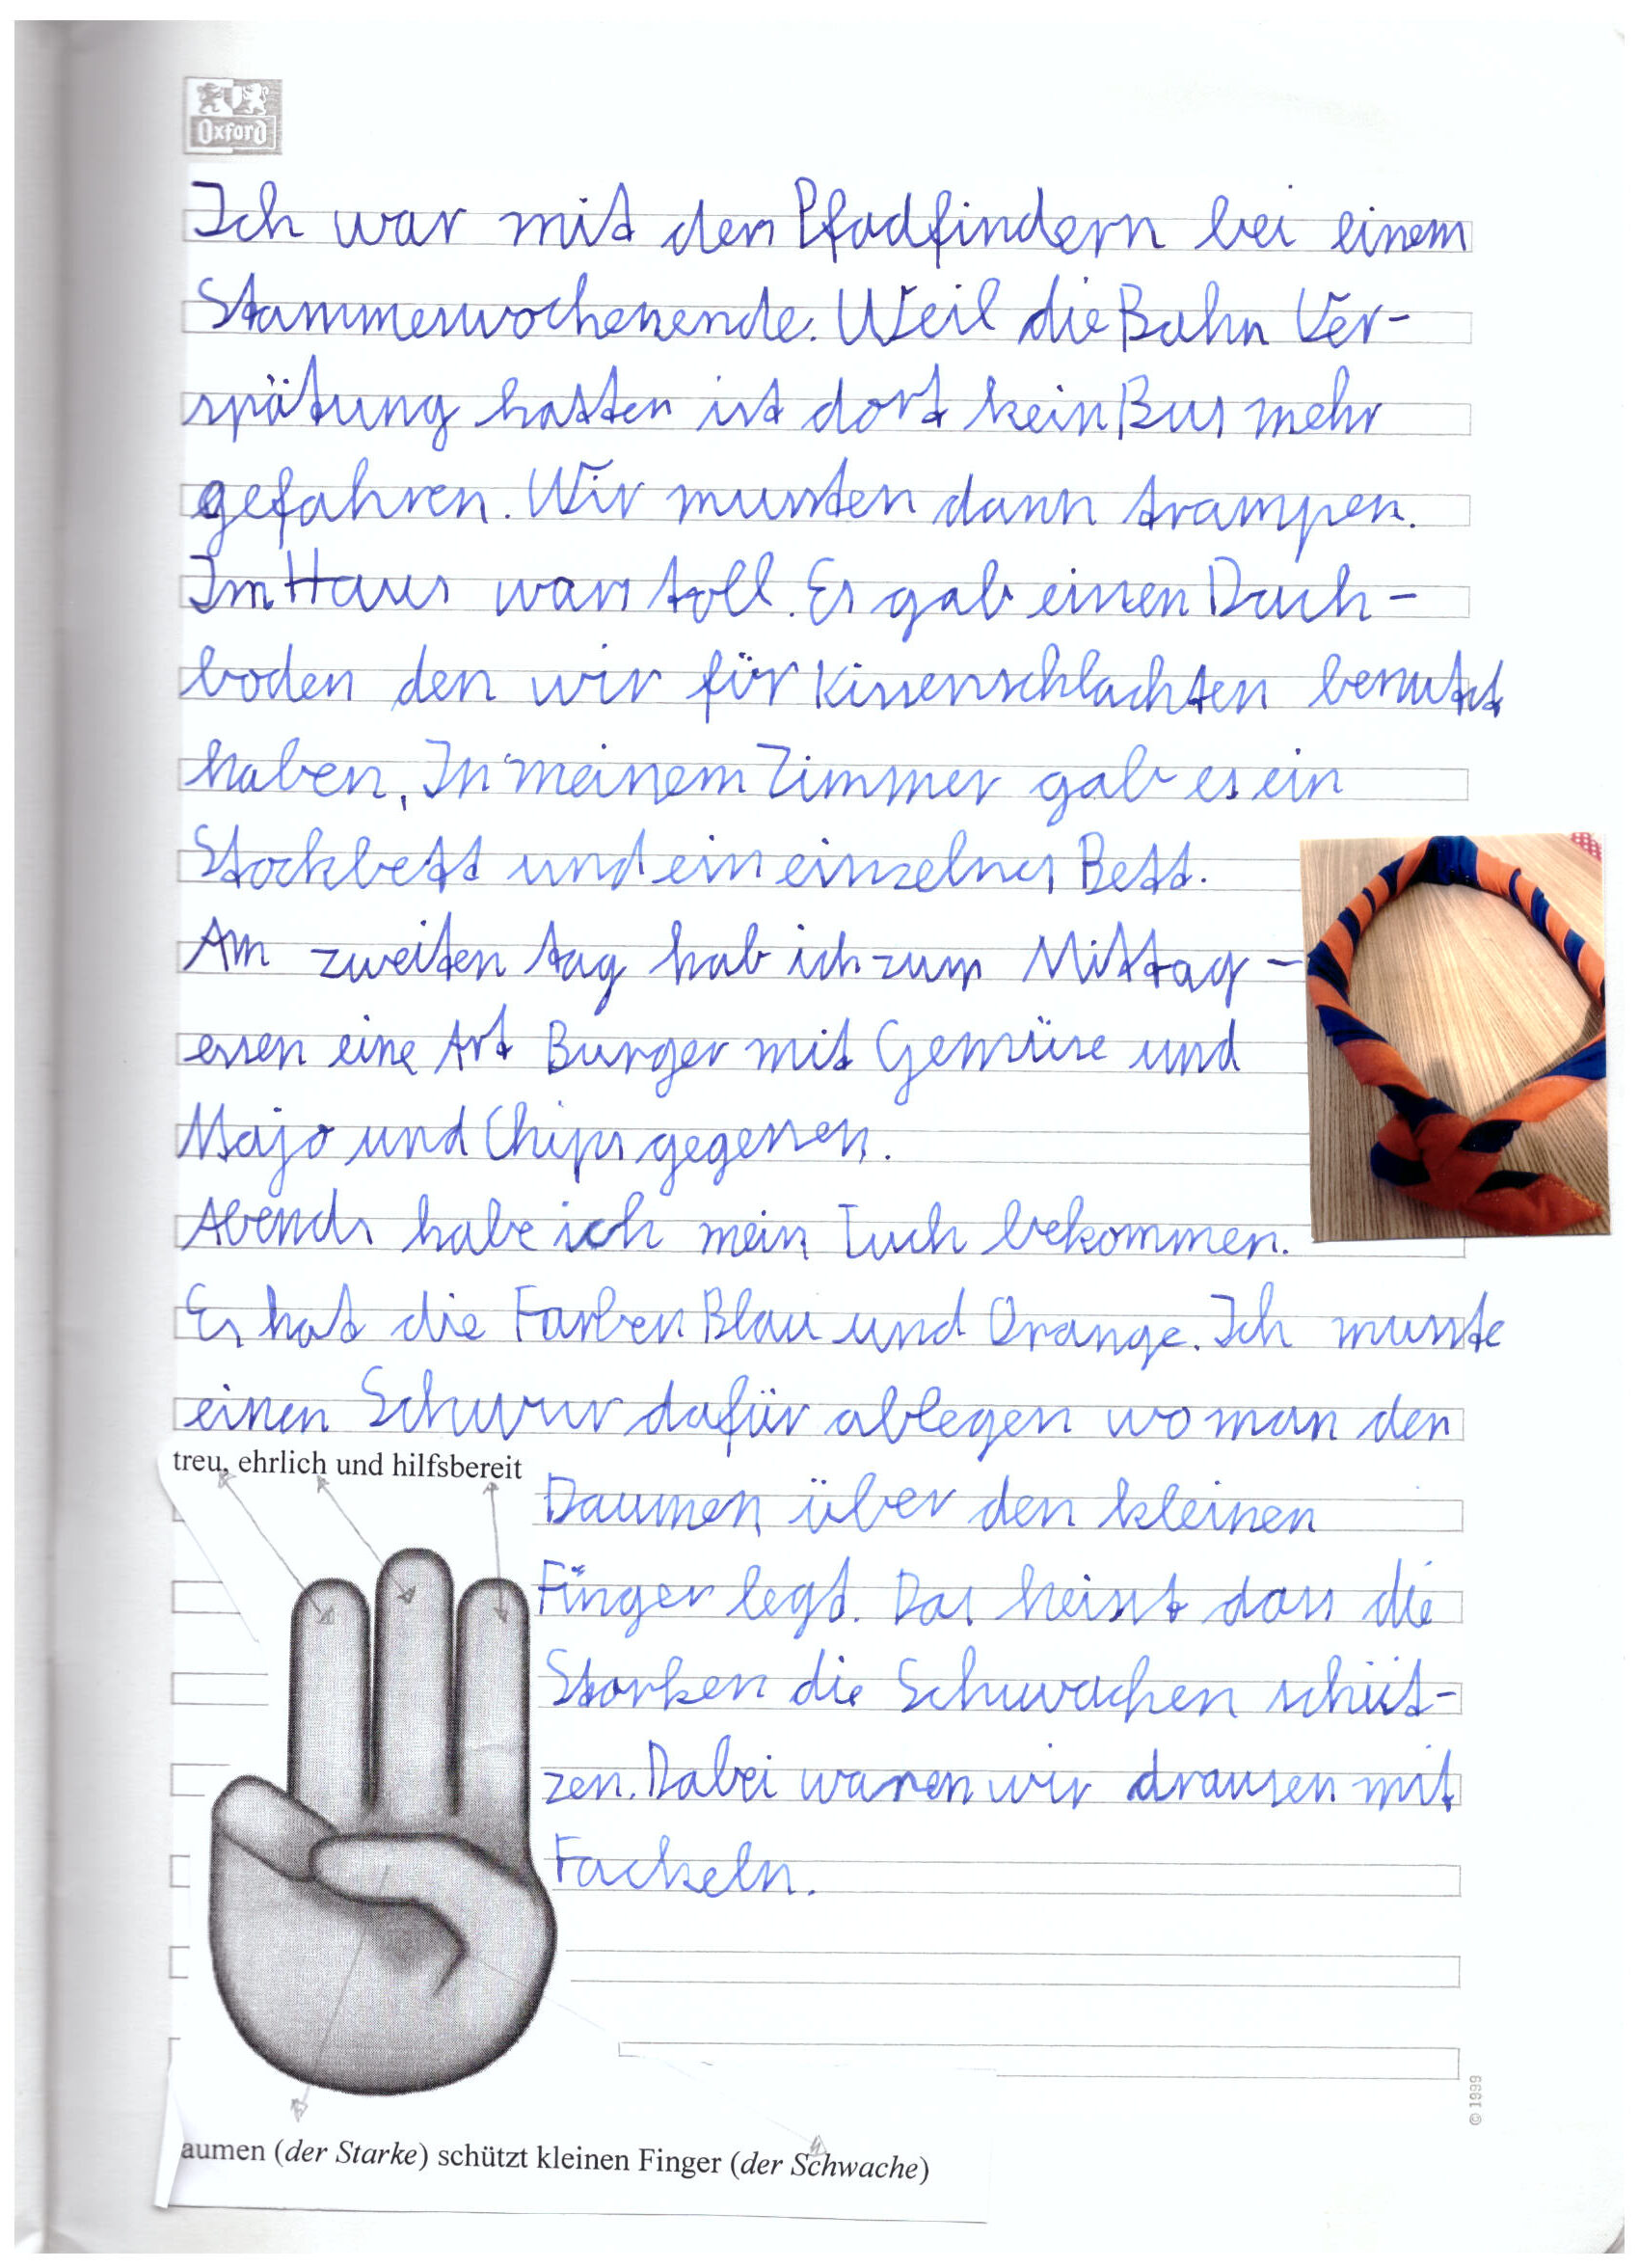 Oxford
Ich war mit den Pfadfindern bei einem
Stammeswochenende. Weil die Bahn Ver-
spätung hatten ist dort kein Bus mehr
gefahren. Wir mussten dann trampen.
Im Haus wars toll. Es gab einen Dach-
boden den wir für Kissenschlachten benutzt
haben. In meinem Zimmer gab es ein
Stockbett und ein einzelnes Bett.
Am zweiten tag hab ich zum Mittag-
essen eine Art Burger mit Gemüse und
Majo und Chips gegessen.
Abends habe ich mein Tuch bekommen.
Es hat die Farben Blau und Orange. Ich musste
einen Schwur dafür ablegen wo man den
treu, ehrlich und hilfsbereit
Daumen über den kleinen
Finger legt. Das heisst dass die
Starken die Schwachen schüt-
zen. Dabei waren wir drausen mit
Fackeln.
© 1999
aumen (der Starke) schützt kleinen Finger (der Schwache)